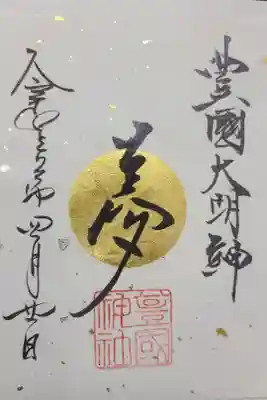 豊國大明神
夢
豊國神社
令和 四月廿日